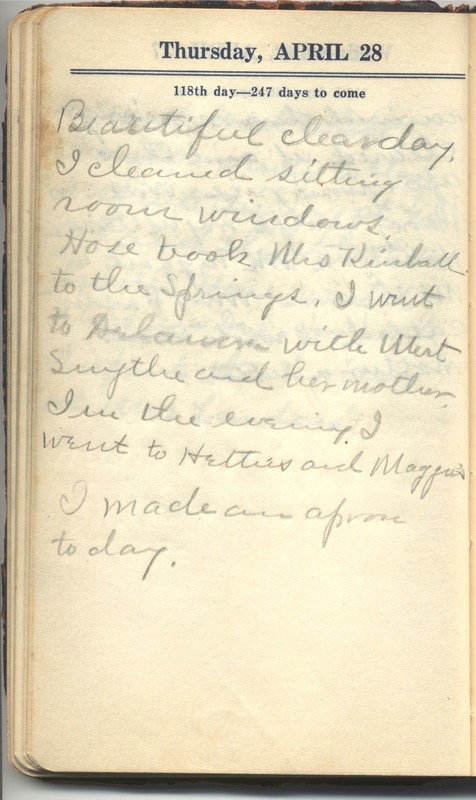 Thursday, APRIL 28
118th day—247 days to come
Beautiful clear day.
I cleaned sitting
room windows.
Hose took Mrs Kimball
to the Springs. I went
to with Mert
Smythe and her mother.
In the evening I
went to Hetties and Maggie's
I made an apron
to day.